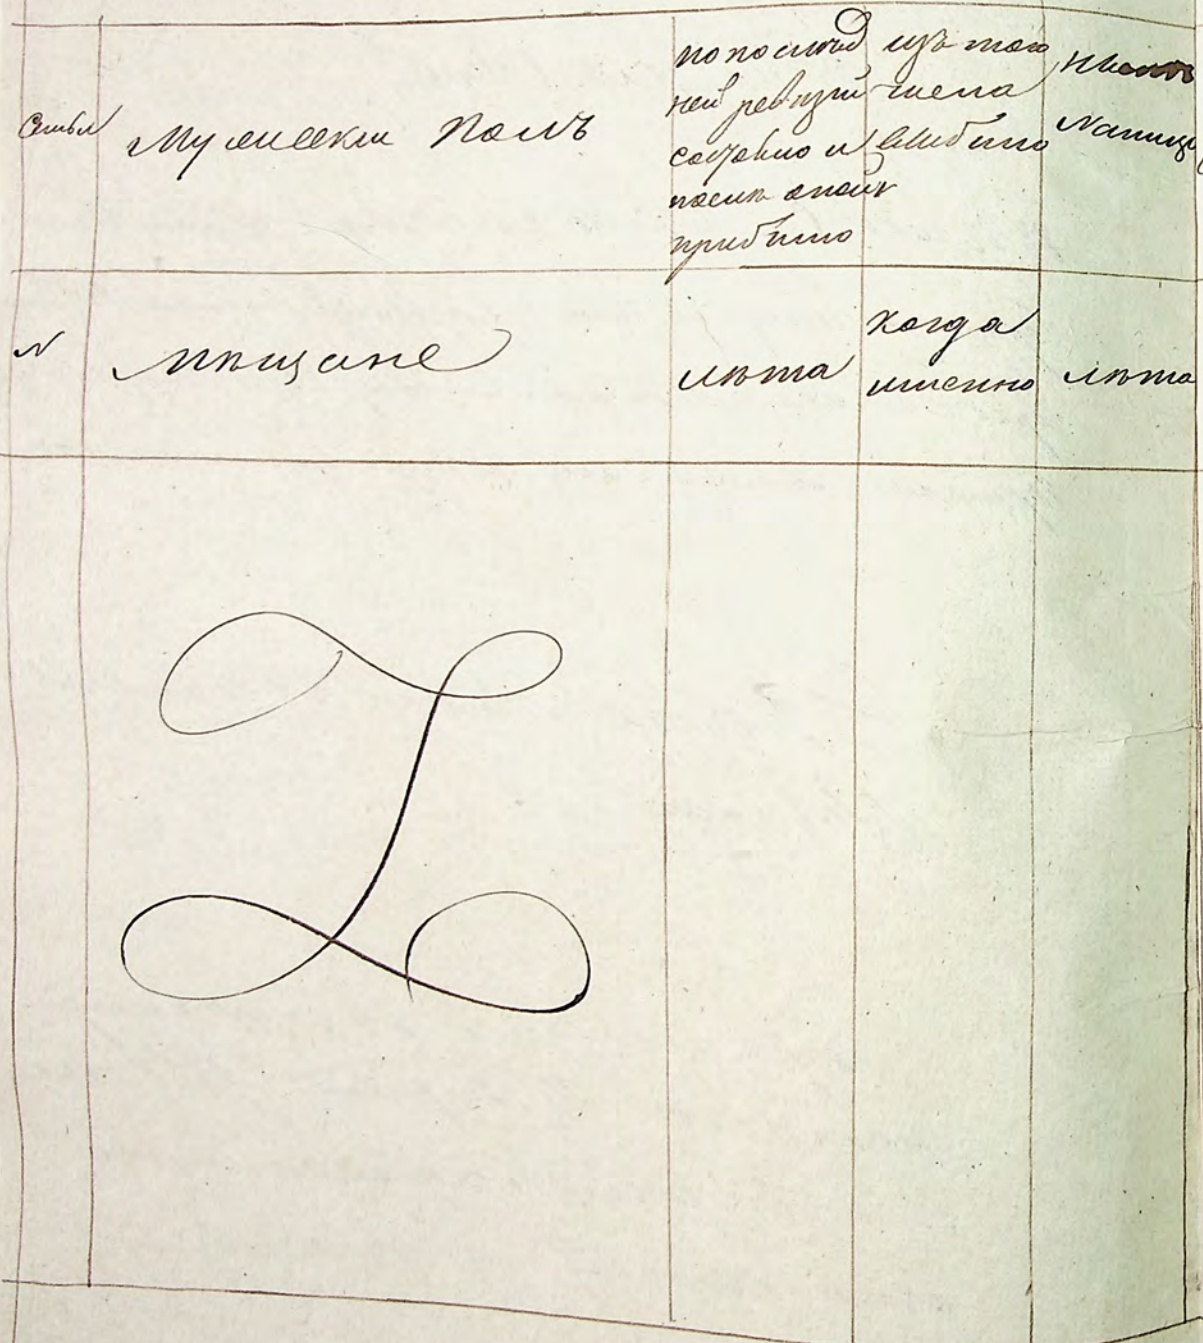 Семьи
Мужескии Полъ
по послед
ней ревизии
состояло и
после оной
прибыло
изъ того
числа
выбыло
ныне
Налицо
№
Мѣщане
лѣта
когда
именно
лѣта